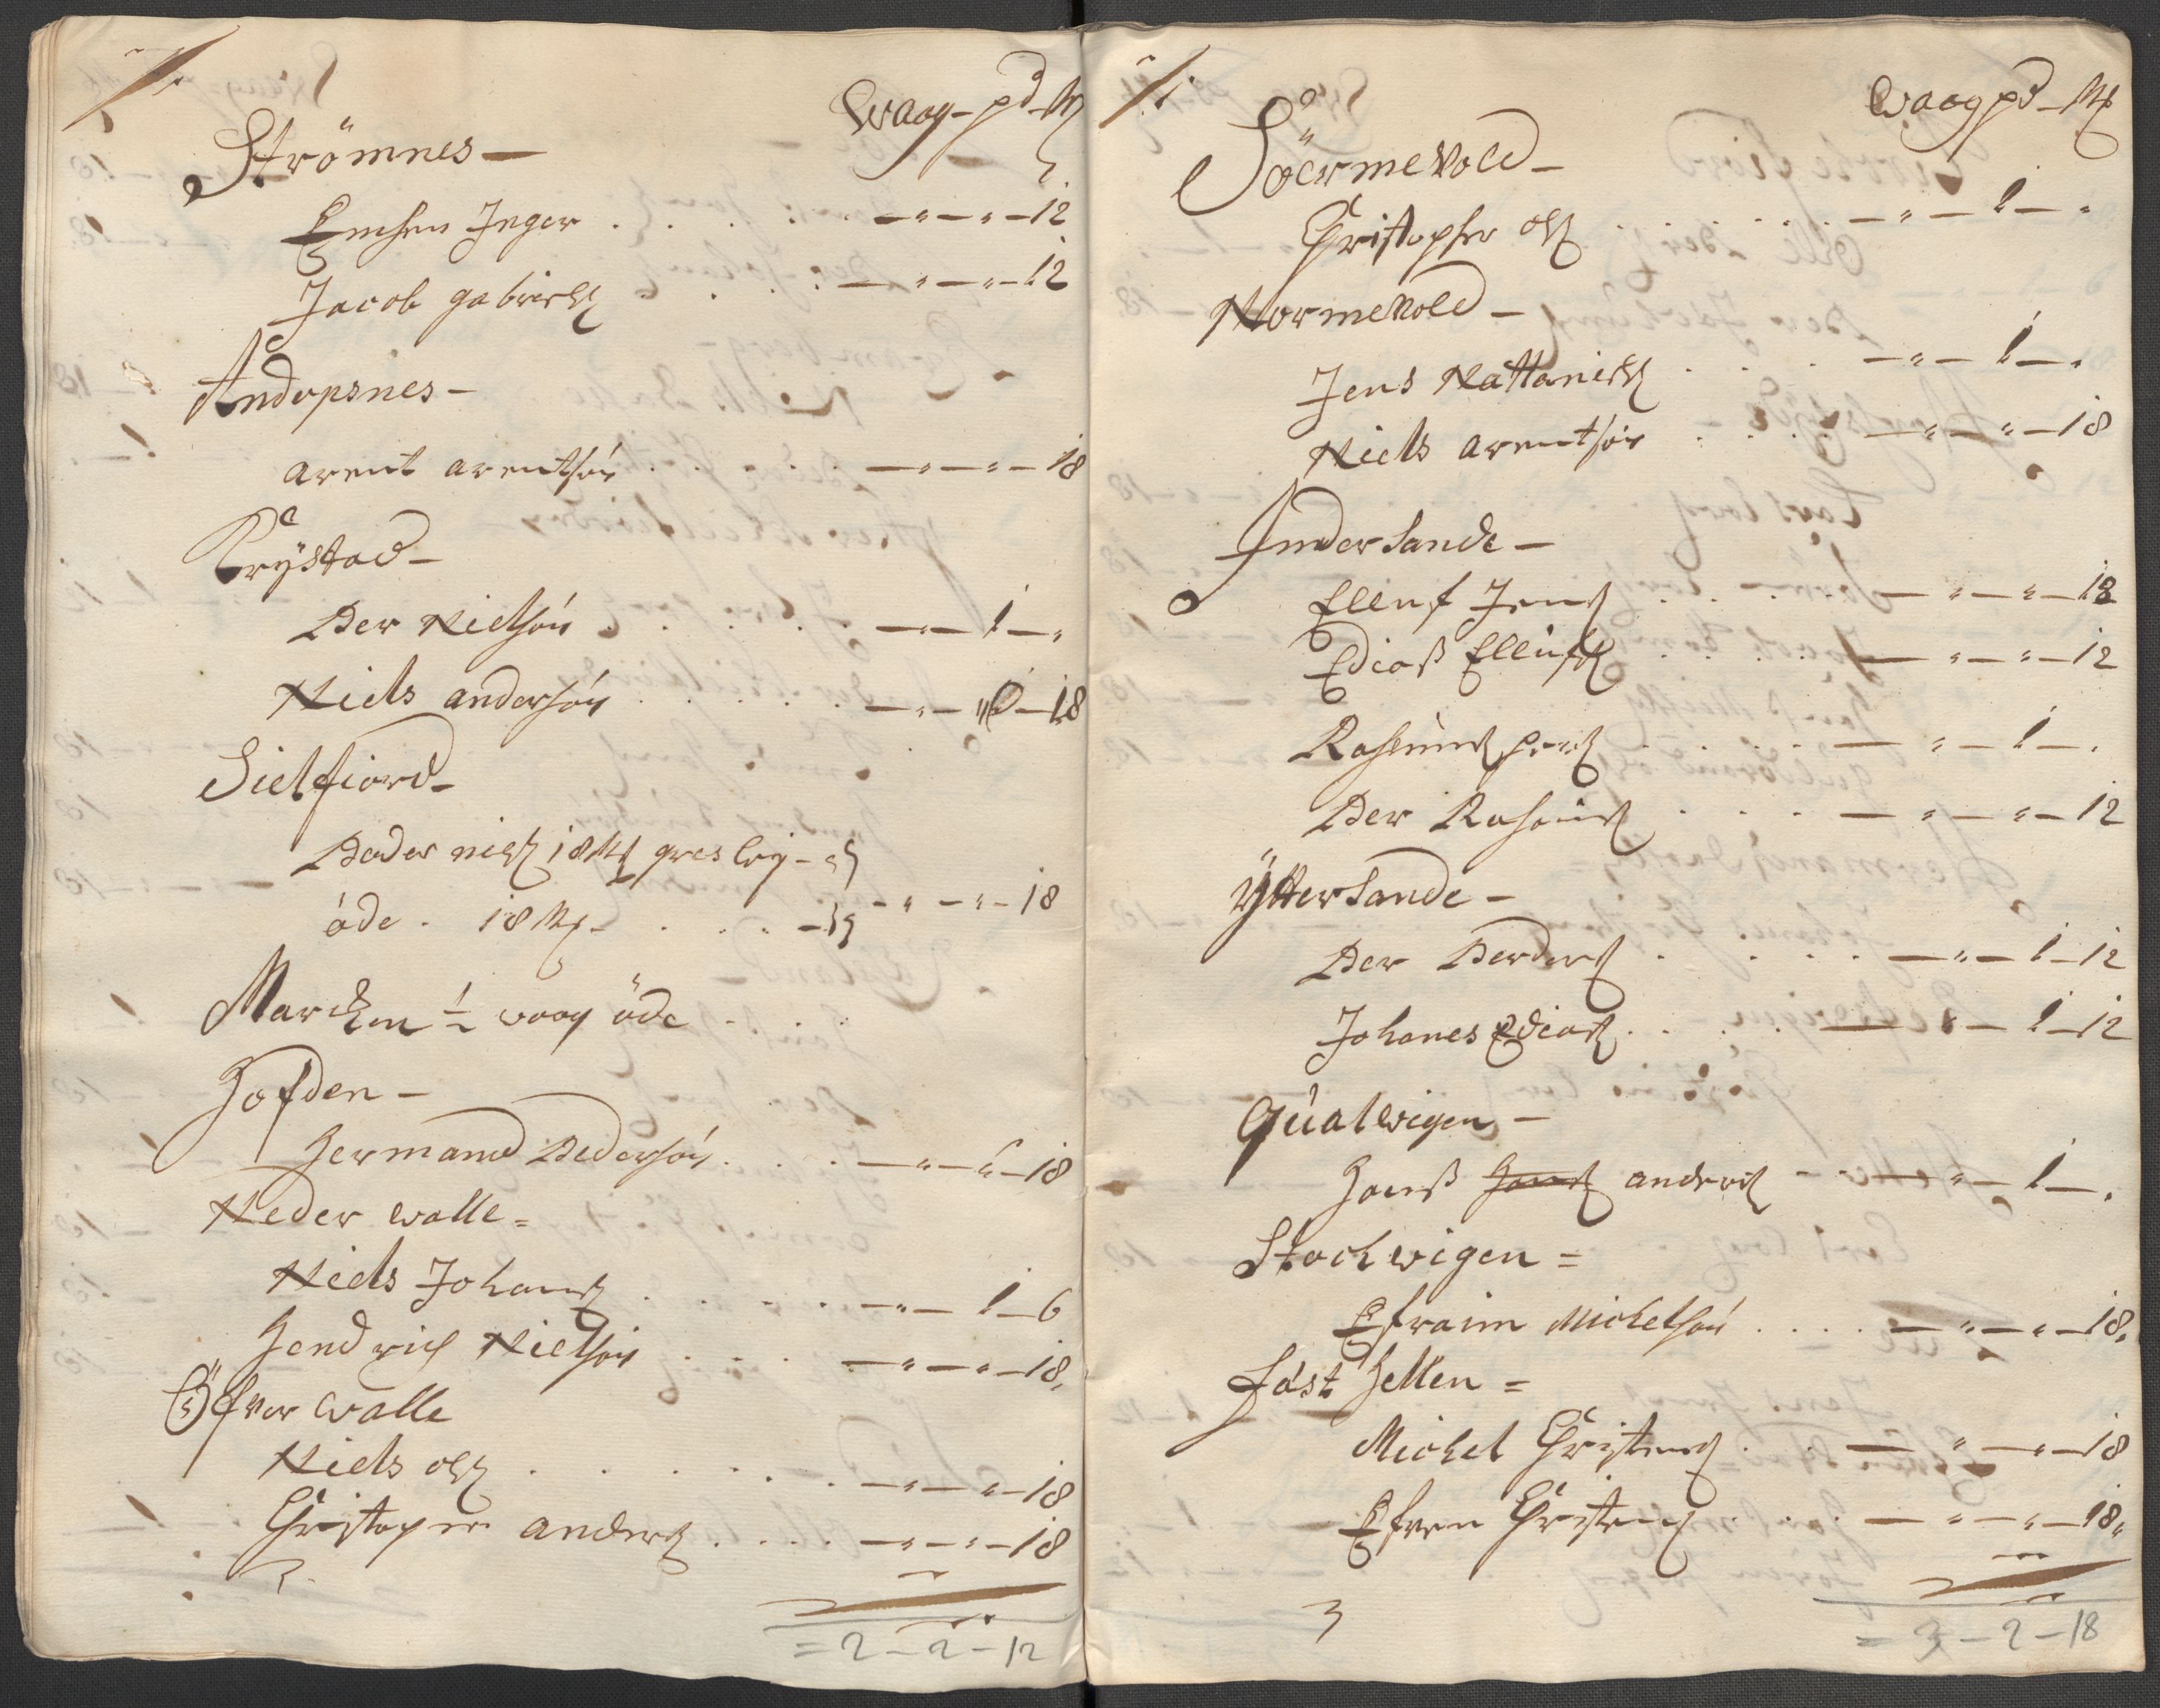 Waag - pd - Mk
Strömnes -
Jnger . . . . . - " - " - 12
Jacob gabriels . . . . - " - " - 12
Andopsnes -
arent arentsøn . . . . . - " - " - 18
Frÿstad -
Peer Nielsøn . . . . . - " - 1 - "
Niels andersøn . . . . . - " - " - 18
Sielfiord -
Peder niels 18 Mk
öde . 18 Mk - . . . - " - " - 18
Marchen ½ waag öde . . .
Hofden -
Hermand Pedersøn . . . - " - " - 18
Neder walle =
Niels Johans . . . . - " - 1 - 6
Hendrich Nielsøn . . . - " - " - 18,
Öfver walle
Niels ols . . . . . . - " - " - 18
Christoper anders . . . . - " - " - 18
= 2 - 2 - 12
Waag pd - Mk
Söermevold -
Christopher ols . . . . . . - " - 1 - "
Normevold -
Jens Nattaniels . . . - " - 1 - "
Niels arentsøn . . . . - " - " - 18
Inder Sande -
Ellluf Jens . . . . - " - " - 18
Edias Ellufs . . . . - " - " - 12
Rasmus pers . . . . - " - 1 - "
Peer Rasmus . . . - " - " - 12
Ÿtter Sande -
Peer Peders . . . . - " - 1 - 12
Johanes Edias . . . . - " - 1 - 12
Qualwigen -
Hans Hans anders - - " - 1 - "
Stochwigen =
Efraim Michelsøn . . . . - " - " - 18,
fast Hellen =
Michel Christens . . - " - " - 18
Efren Christens . . . - " - " - 18,
3
= 3 - 2 - 18